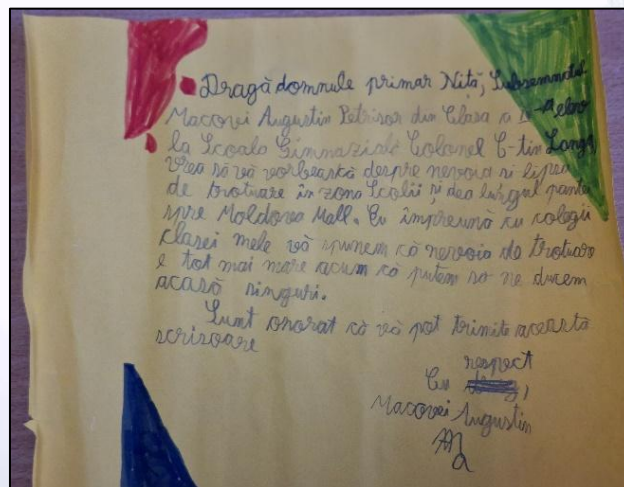 Dragă domnule primar Nită, Subsemnatul
Macovei Augustin Petrisor din Clasa a IV-A elev
la Scoala Gimnazială Colonel C-tin Langa,
vrea să vă vorbească despre nevoia si lipsa
de trotuare în zona Scolii și dea lungul pantei
spre Moldova Mall. Eu împreună cu colegii
clasei mele vă spunem că nevoia de trotuare
e tot mai mare acum că putem sa ne ducem
acasă singuri.
Sunt onorat că vă pot trimite această
scrisoare
respect
Cu ,
Macovei Augustin